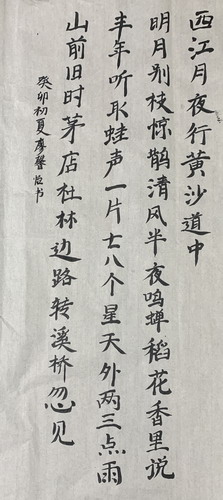 西江月夜行黄沙道中
明月别枝惊鹊清风半夜鸣蝉稻花香里说
丰年听取蛙声一片七八个星天外两三点雨
山前旧时茅店社林边路转溪桥忽见
癸卯初夏廖馨书